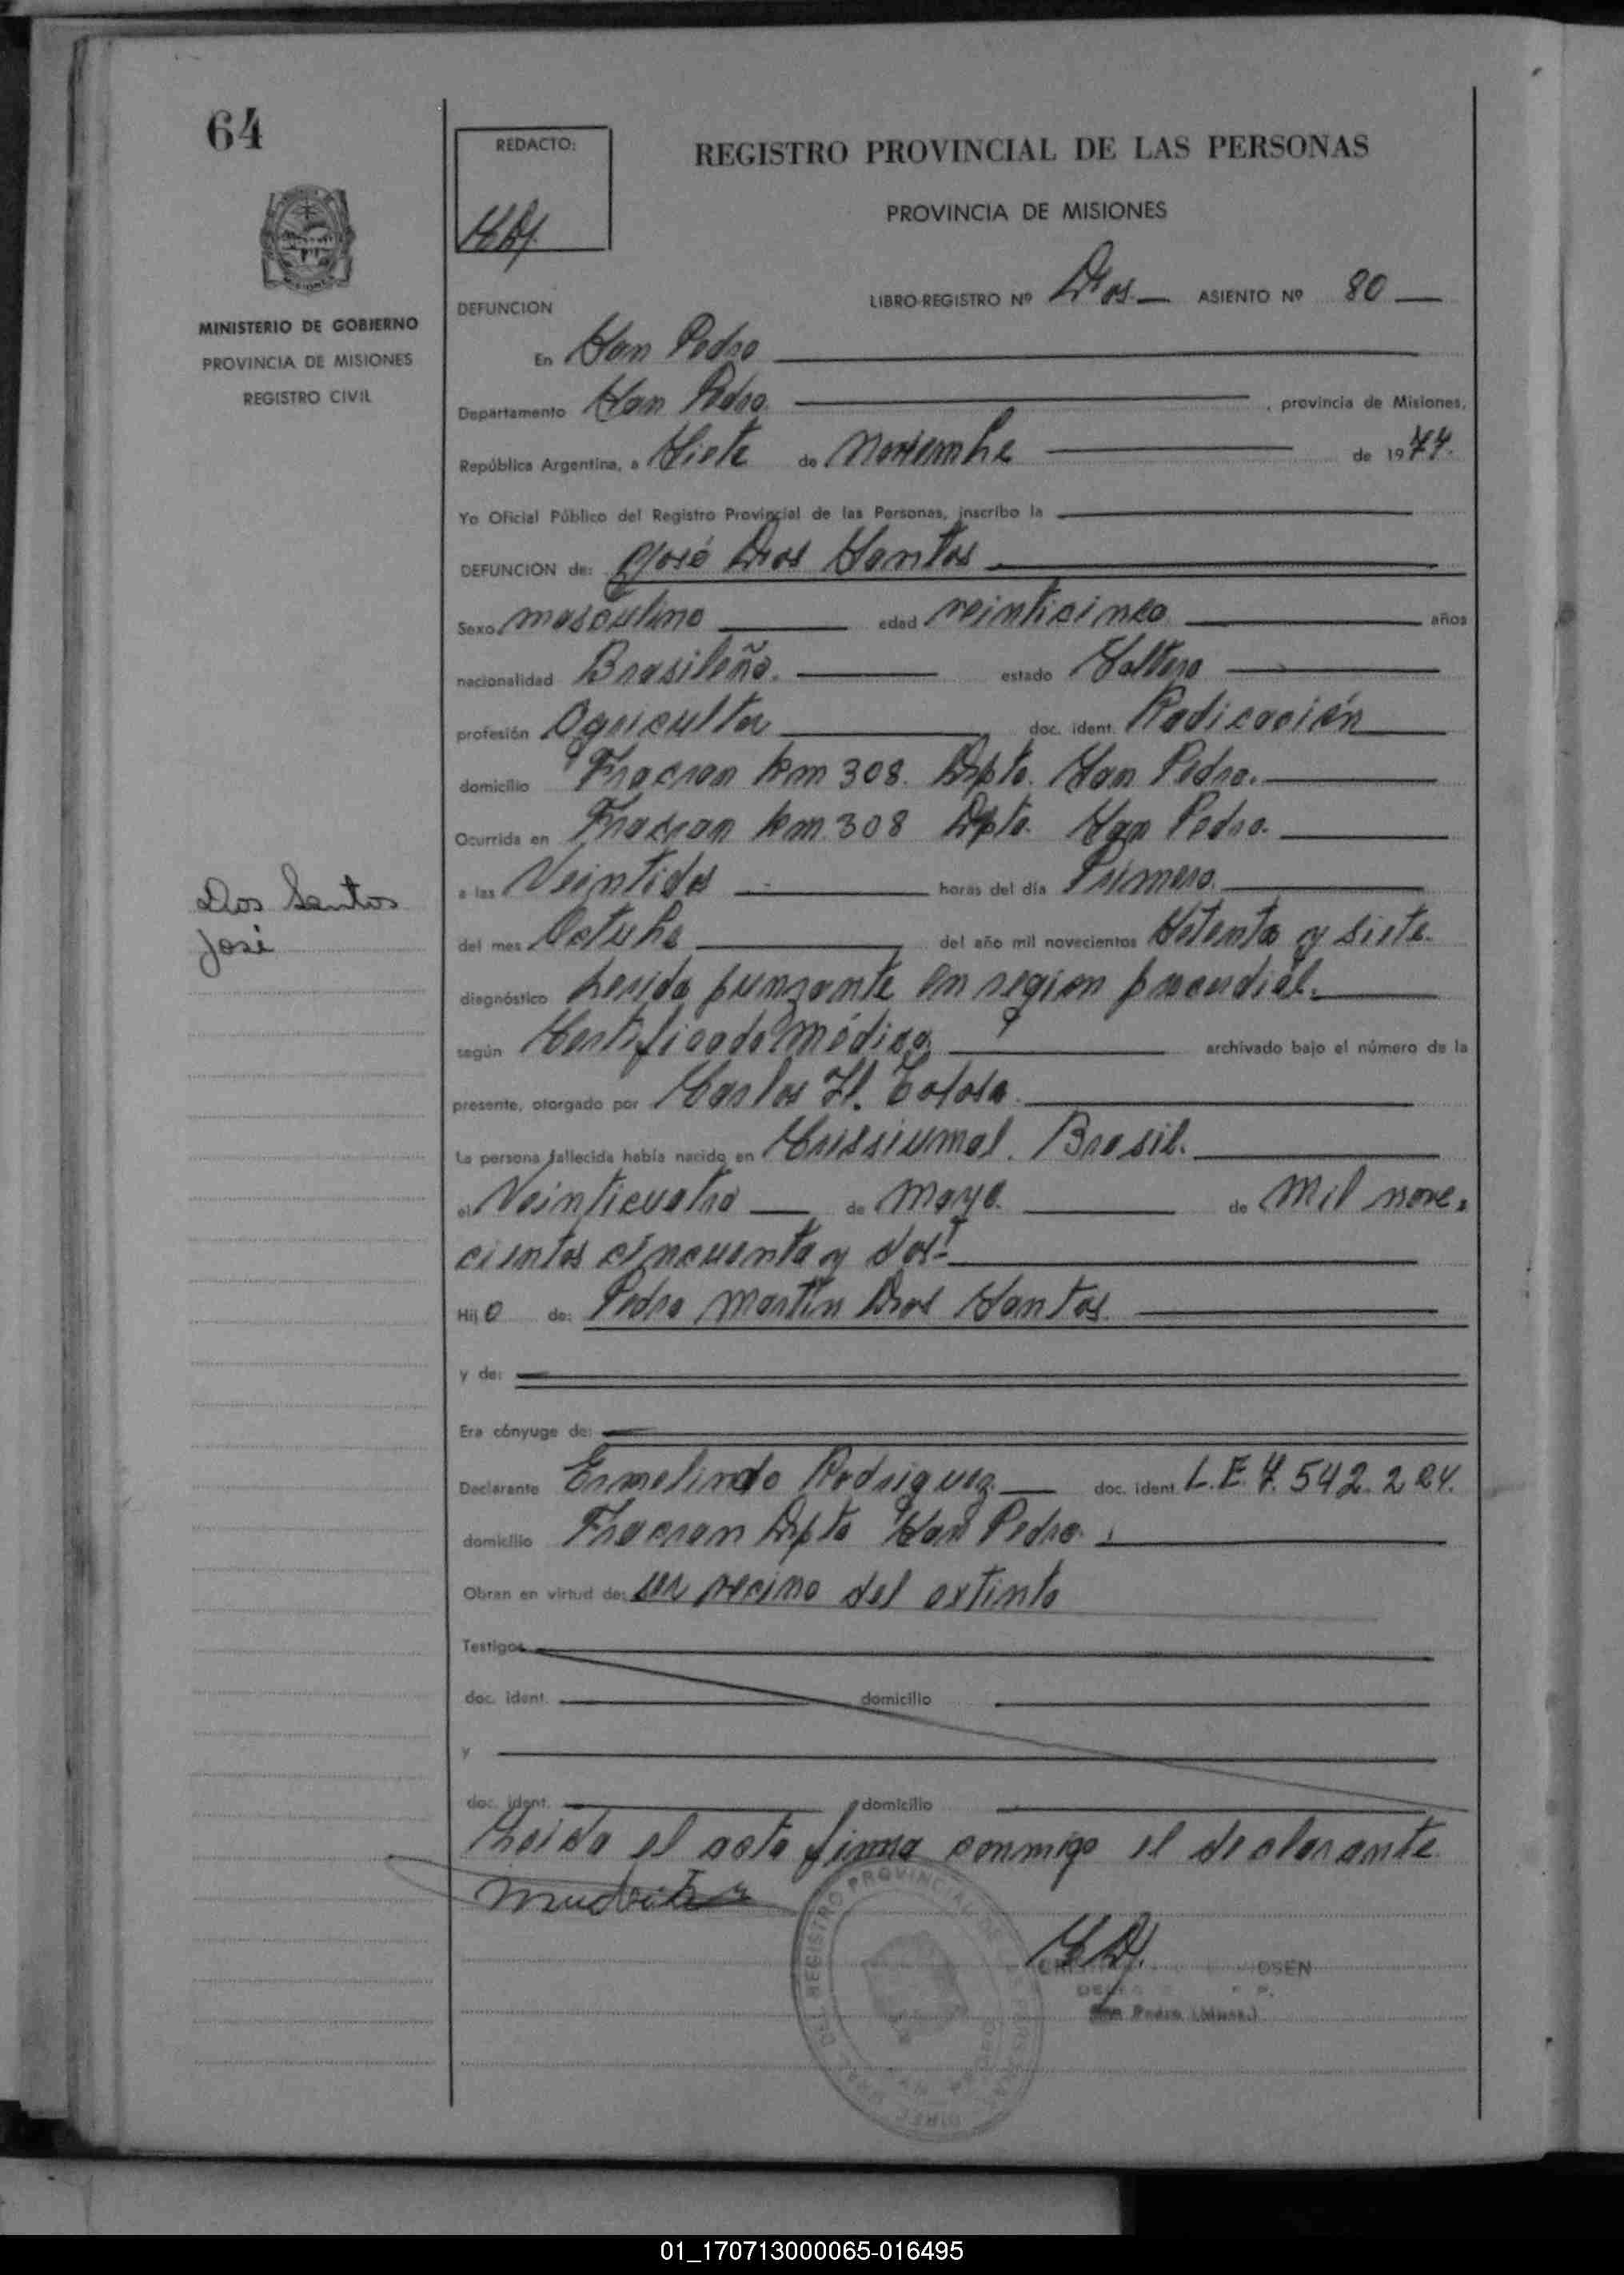 64
REDACTO:
REGISTRO PROVINCIAL DE LAS PERSONAS
PROVINCIA DE MISIONES
MINISTERIO DE GOBIERNO
PROVINCIA DE MISIONES
REGISTRO CIVIL
DEFUNCION
LIBRO-REGISTRO Nº Dos ASIENTO Nº 80
En San Pedro
Departamento San Pedro, provincia de Misiones,
República Argentina, a Siete de Noviembre de 1977.
Yo Oficial Público del Registro Provincial de las Personas, inscribo la
DEFUNCION de: José Dos Santos
Sexo masculino edad veinticinco años
nacionalidad Brasileña. estado Soltero
profesión Agricultor doc. ident. Radicación
domicilio Fracran km 308. Dpto. San Pedro.
Ocurrida en Fracran km 308 Dpto. San Pedro.
a las Veintidos horas del día Primero.
Dos Santos
José
del mes Octubre del año mil novecientos Setenta y siete.
diagnóstico herida punzante en region precordial.
según Certificado Médico archivado bajo el número de la
presente, otorgado por Carlos H.
La persona fallecida había nacido en Crissiumal. Brasil.
el Veinticuatro de mayo. de mil nove-
cientos cincuenta y dos.
Hijo de: Pedro Martin Dos Santos.
y de:
Era cónyuge de:
Declarante Ermelindo Rodriguez doc. ident. L.E. 7.542.224.
domicilio Fracran Dpto San Pedro.
Obran en virtud de: ser vecino del extinto
Testigos
doc. ident. domicilio
y
doc. ident. domicilio
Leida el acta firma conmigo el declarante
REGISTRO PROVINCIAL DE
San Pedro (Mnes.)
01_170713000065-016495